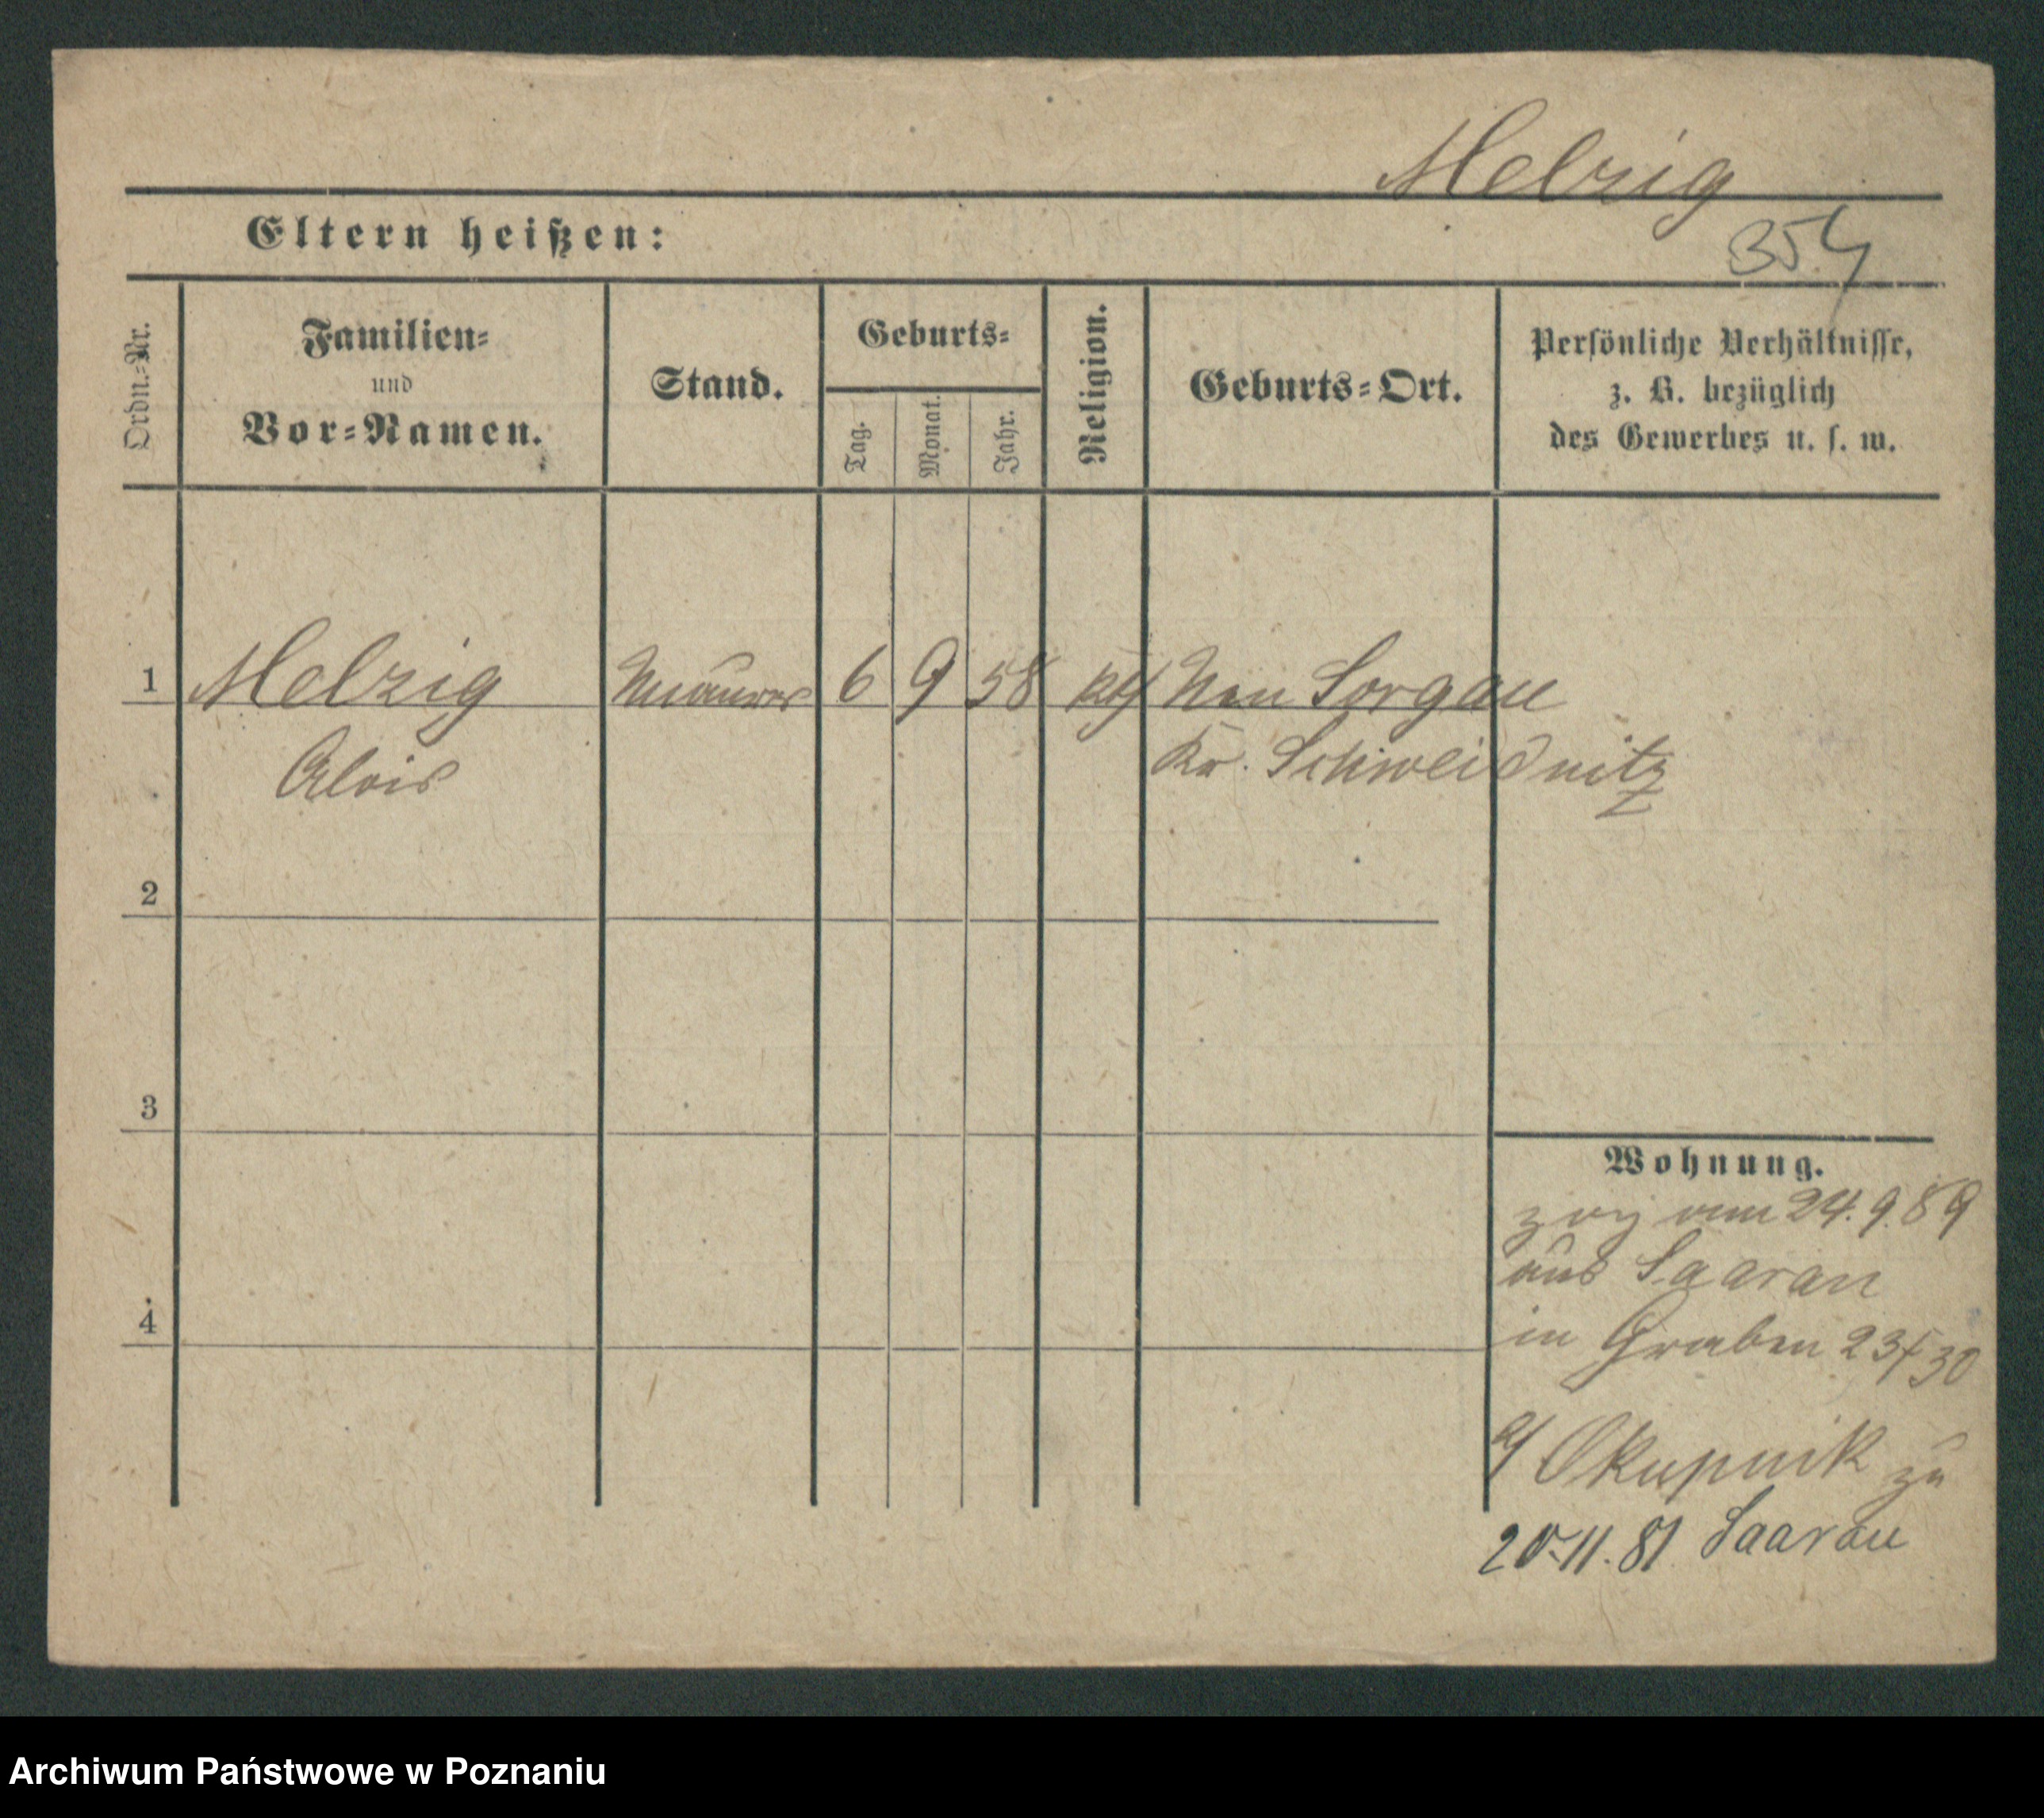 Melzig
Eltern heißen:
354
Ordn.-Nr.
Familien-
und
Vor-Namen.
Stand.
Geburts-
Tag.
Monat.
Jahr.
Religion.
Geburts-Ort.
Persönliche Verhältnisse,
z. B. bezüglich
des Gewerbes u. s. w.
1 Melzig Maurer 6 9 58 kth Neu Sorgau
Alois Kr. Schweidnitz
2
3
4
Wohnung.
zog am 24.9.89
aus Saarau
in Graben 23/30
Okupnik zu
11. 81 Saarau
Archiwum Państwowe w Poznaniu